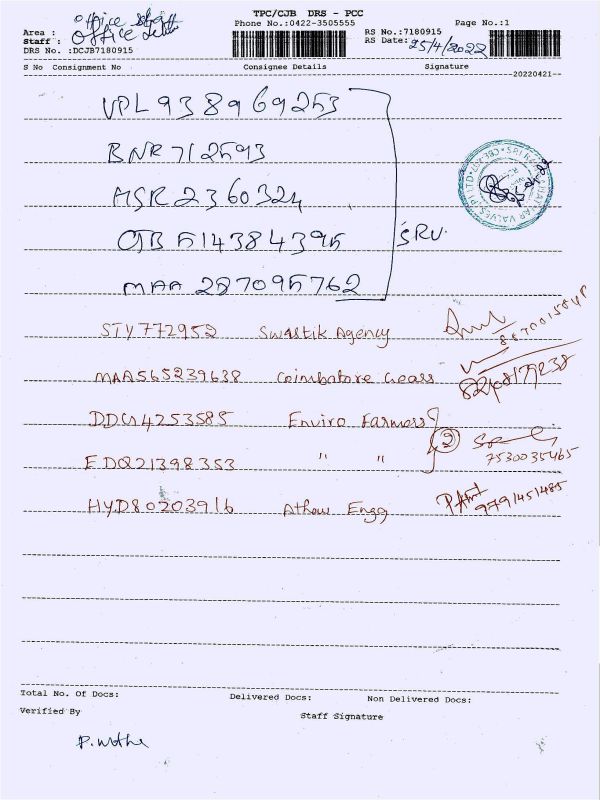 TPC/CJB DRS - PCC
Phone No.:0422-3505555
Page No.:1
Area : office
Staff : office
DRS No. :DCJB7180915
RS No.:7180915
RS Date: 25/4/2022
S No Consignment No Consignee Details Signature
--20220421--
VPL938969253
BNR712593
MSR2360324
CJB514384395 SRV.
MAA287095762
STY772952 Swastik Agency
MAA565239638 Coimbatore Gears
DDG4253585 Enviro Farmers
2
EDQ21398353 " "
7530035465
HYD80203916 Engg
9791451485
Total No. Of Docs: Delivered Docs: Non Delivered Docs:
Verified By Staff Signature